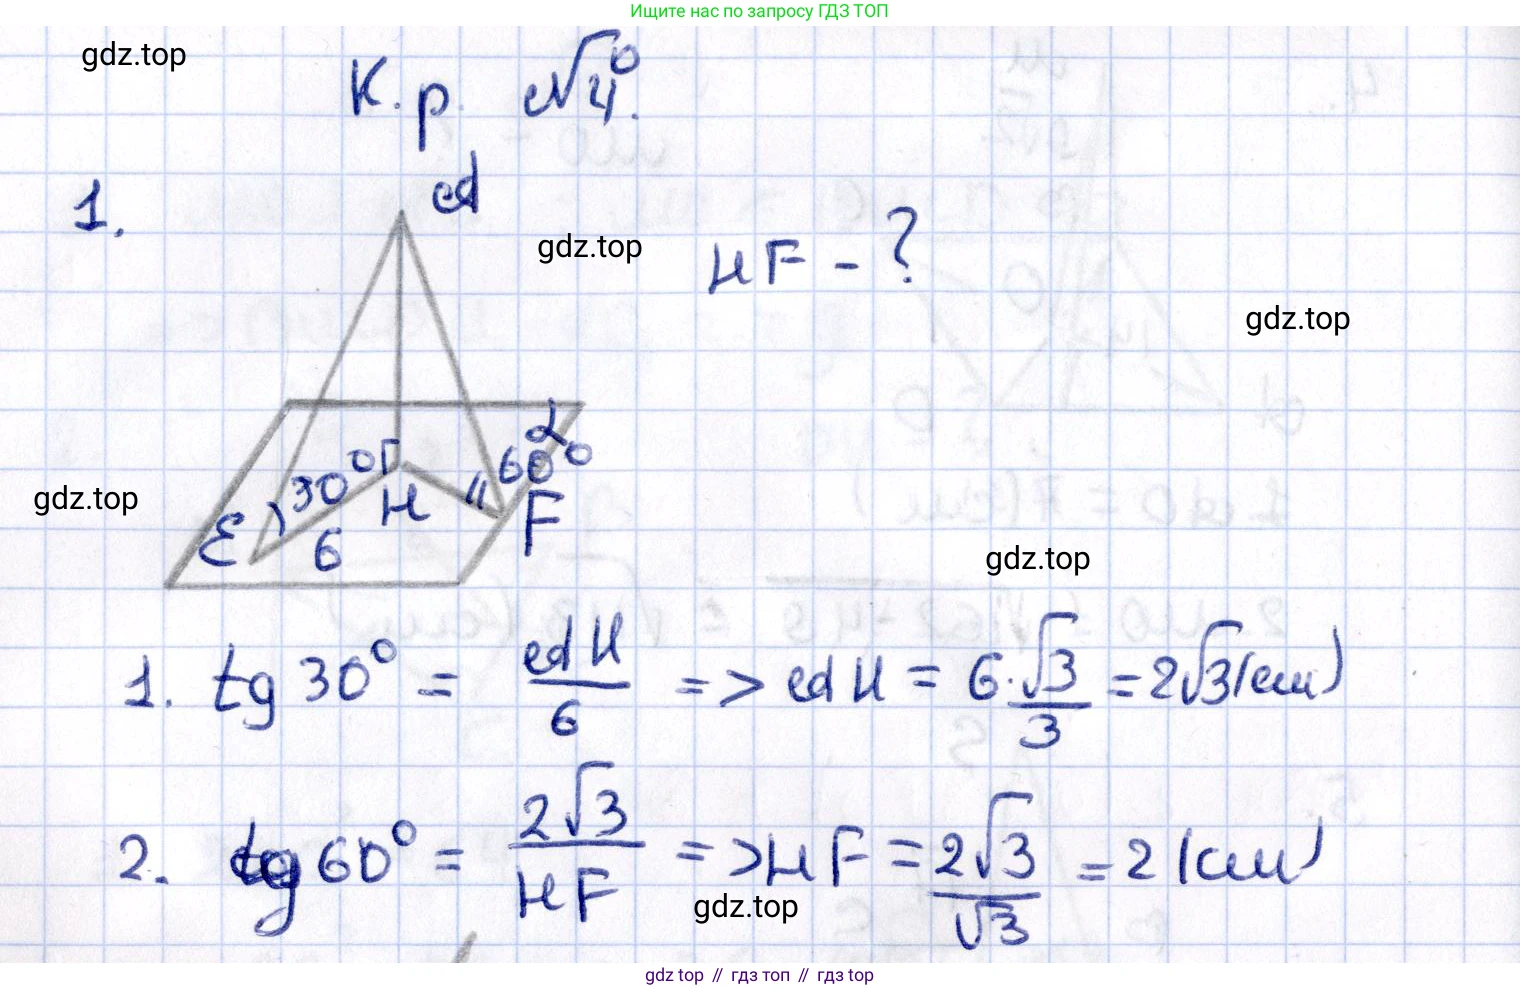 Ищите нас по запросу ГДЗ ТОП
gdz.top
К.р. №4.
1.
A
gdz.top
HF - ?
gdz.top
α
30° 60°
gdz.top
E 6 H F
gdz.top
1. tg 30° = AH/6 => AH = 6·√3/3 = 2√3 (см)
2. tg 60° = 2√3/HF => HF = 2√3/√3 = 2 (см)
gdz.top
gdz top // гдз топ // гдз top